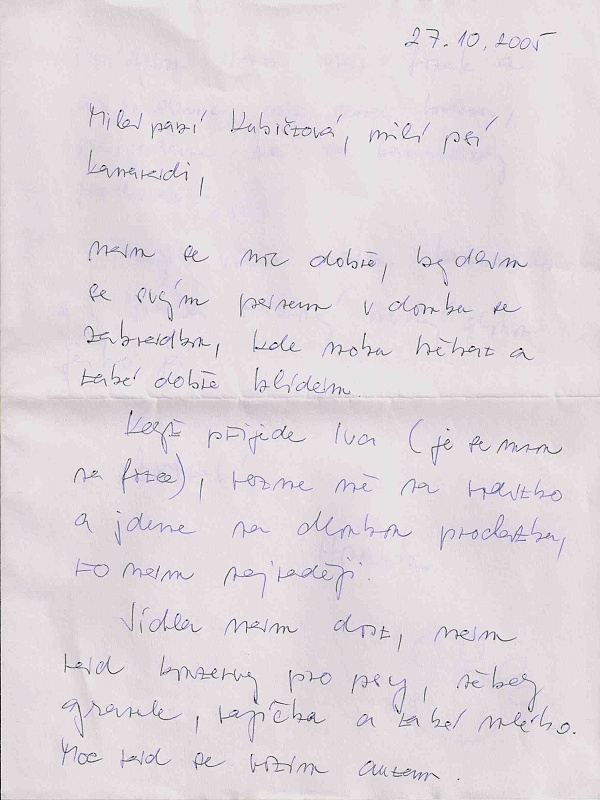 27.10.2005
Milá paní Kubičková, milí psí
kamarádi,
mám se moc dobře, bydlím
se svým pánem v domku se
zahrádkou, kde mohu běhat a
také dobře hlídám.
Když přijede Iva (je se mnou
na fotce), vezme mě na vodítko
a jdeme na dlouhou procházku,
to mám nejraději.
Jídla mám dost, mám
rád konzervy pro psy, někdy
granule, vajíčka a také mléko.
Moc rád se vozím autem.